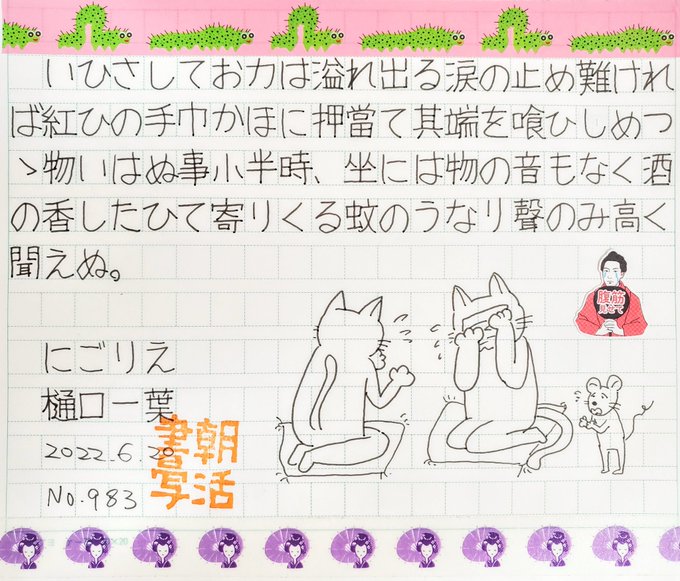 いひさしてお力は溢れ出る涙の止め難けれ
ば紅ひの手巾かほに押當て其端を喰ひしめつ
ゝ物いはぬ事小半時、坐には物の音もなく酒
の香したひて寄りくる蚊のうなり聲のみ高く
聞えぬ。
腹筋
見せて
にごりえ
樋口一葉
2022.6.20
No.983
朝活
書写